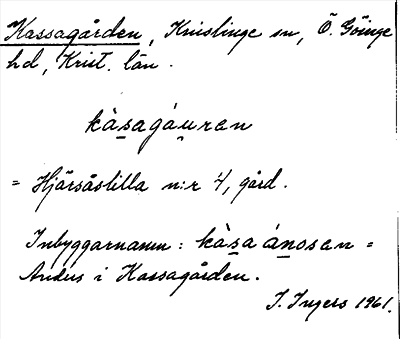 Kassagården, Knislinge sn, Ö. Göinge
hd, Krist. län.
kàsagáuran
= Hjärsåslilla n:r 4, gård.
Inbyggarnamn: kàsa ánosen =
Anders i Kassagården.
I. Ingers 1961.